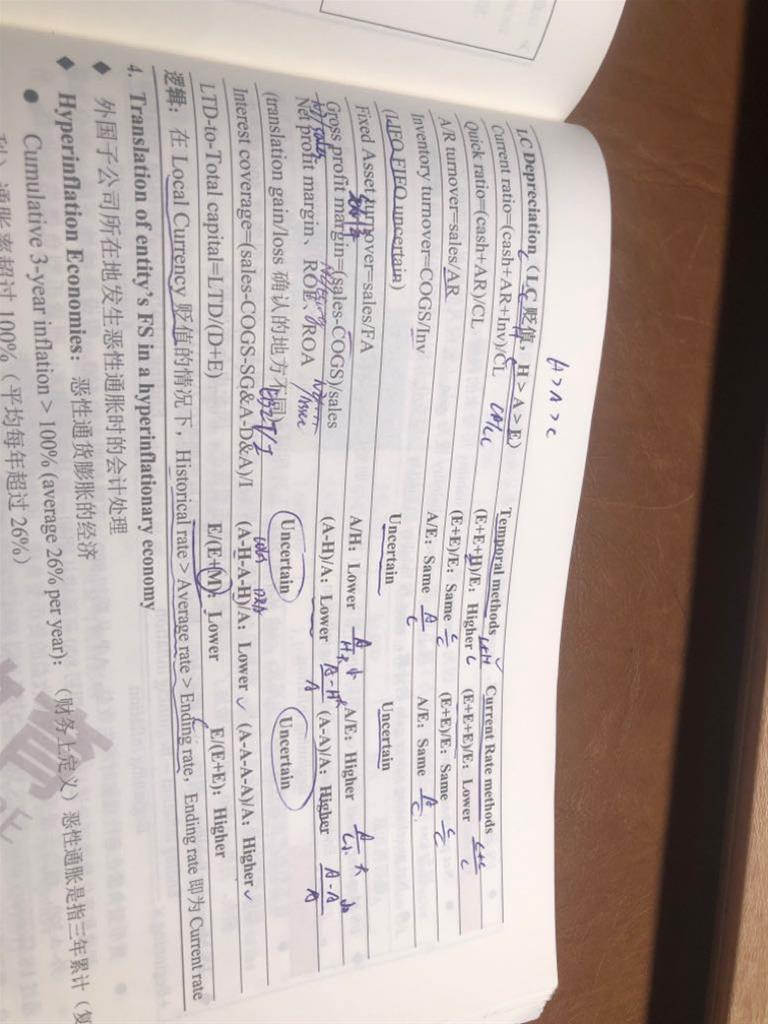 H>A>C
LC Depreciation (LC 贬值, H > A > E) Temporal methods Current Rate methods
Current ratio=(cash+AR+Inv)/CL (E+E+H)/E: Higher (E+E+E)/E: Lower
Quick ratio=(cash+AR)/CL (E+E)/E: Same (E+E)/E: Same
A/R turnover=sales/AR A/E: Same A/E: Same
Inventory turnover=COGS/Inv Uncertain Uncertain
(LIFO FIFO uncertain)
Fixed Asset turnover=sales/FA A/H: Lower A/E: Higher
Gross profit margin=(sales-COGS)/sales (A-H)/A: Lower (A-A)/A: Higher
Net profit margin、ROE、ROA Uncertain Uncertain
(translation gain/loss 确认的地方不同)
Interest coverage=(sales-COGS-SG&A-D&A)/I (A-H-A-H)/A: Lower (A-A-A-A)/A: Higher
LTD-to-Total capital=LTD/(D+E) E/(E+M): Lower E/(E+E): Higher
逻辑: 在 Local Currency 贬值的情况下, Historical rate > Average rate > Ending rate, Ending rate 即为 Current rate
4. Translation of entity's FS in a hyperinflationary economy
◆ 外国子公司所在地发生恶性通胀时的会计处理
◆ Hyperinflation Economies: 恶性通货膨胀的经济
● Cumulative 3-year inflation > 100% (average 26% per year): (财务上定义) 恶性通胀是指三年累计 (复
利) 通胀率超过 100% (平均每年超过 26%)